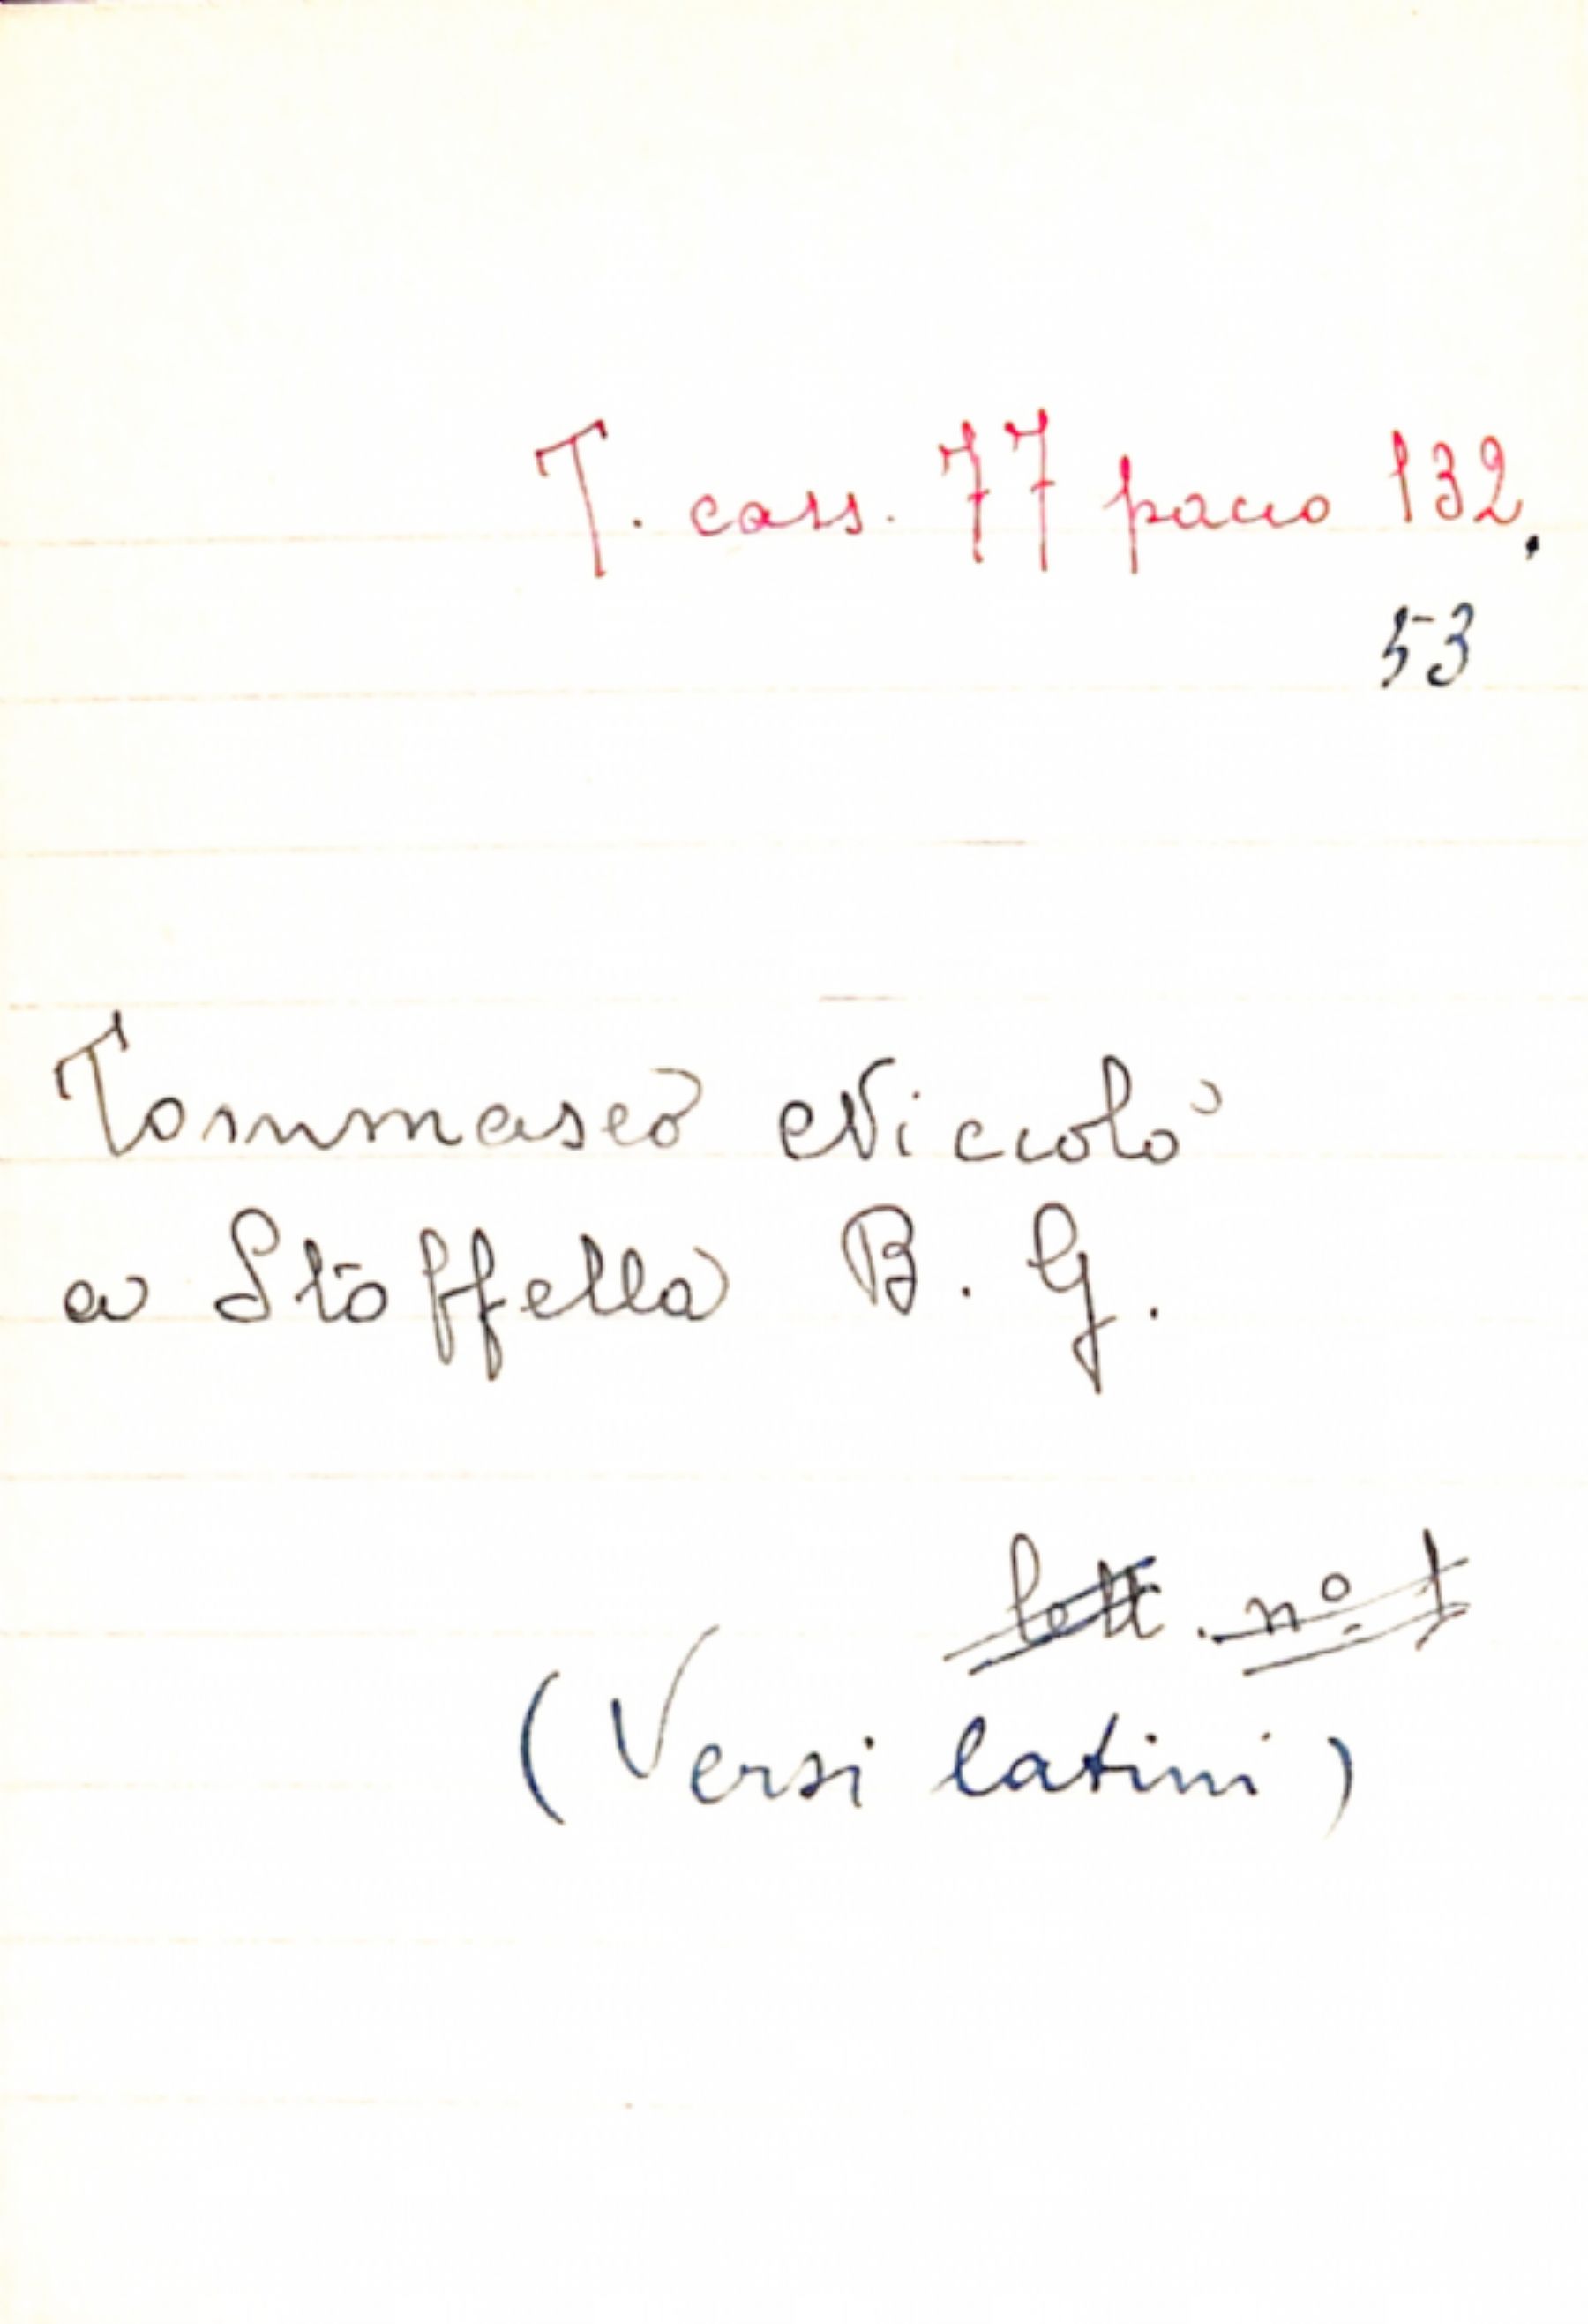 T. cass. 77 pacco 132.
53
Tommaseo Niccolò
a Stoffella B. G.
lett. n.º 1
(Versi latini)